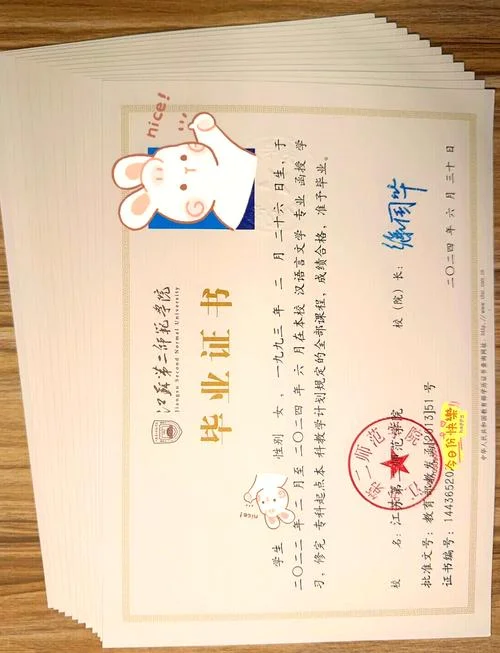 江苏第二师范学院
Jiangsu Second Normal University
毕业证书
nice!
学生 性别 女，一九九三年 二月 二十六日生，于
二〇二二年 二月至 二〇二四年 六月在本校 汉语言文学 专业 函授 学
习，修完 专科起点本 科教学计划规定的全部课程，成绩合格，准予毕业。
nice!
校 名：江苏第二师范学院
校（院）长：
批准文号：教育部教发函[2013]51号
证书编号：14436520
今日份快乐
happy
二〇二四年 六月 三十日
中华人民共和国教育部学历证书查询网址：http://www.chsi.com.cn